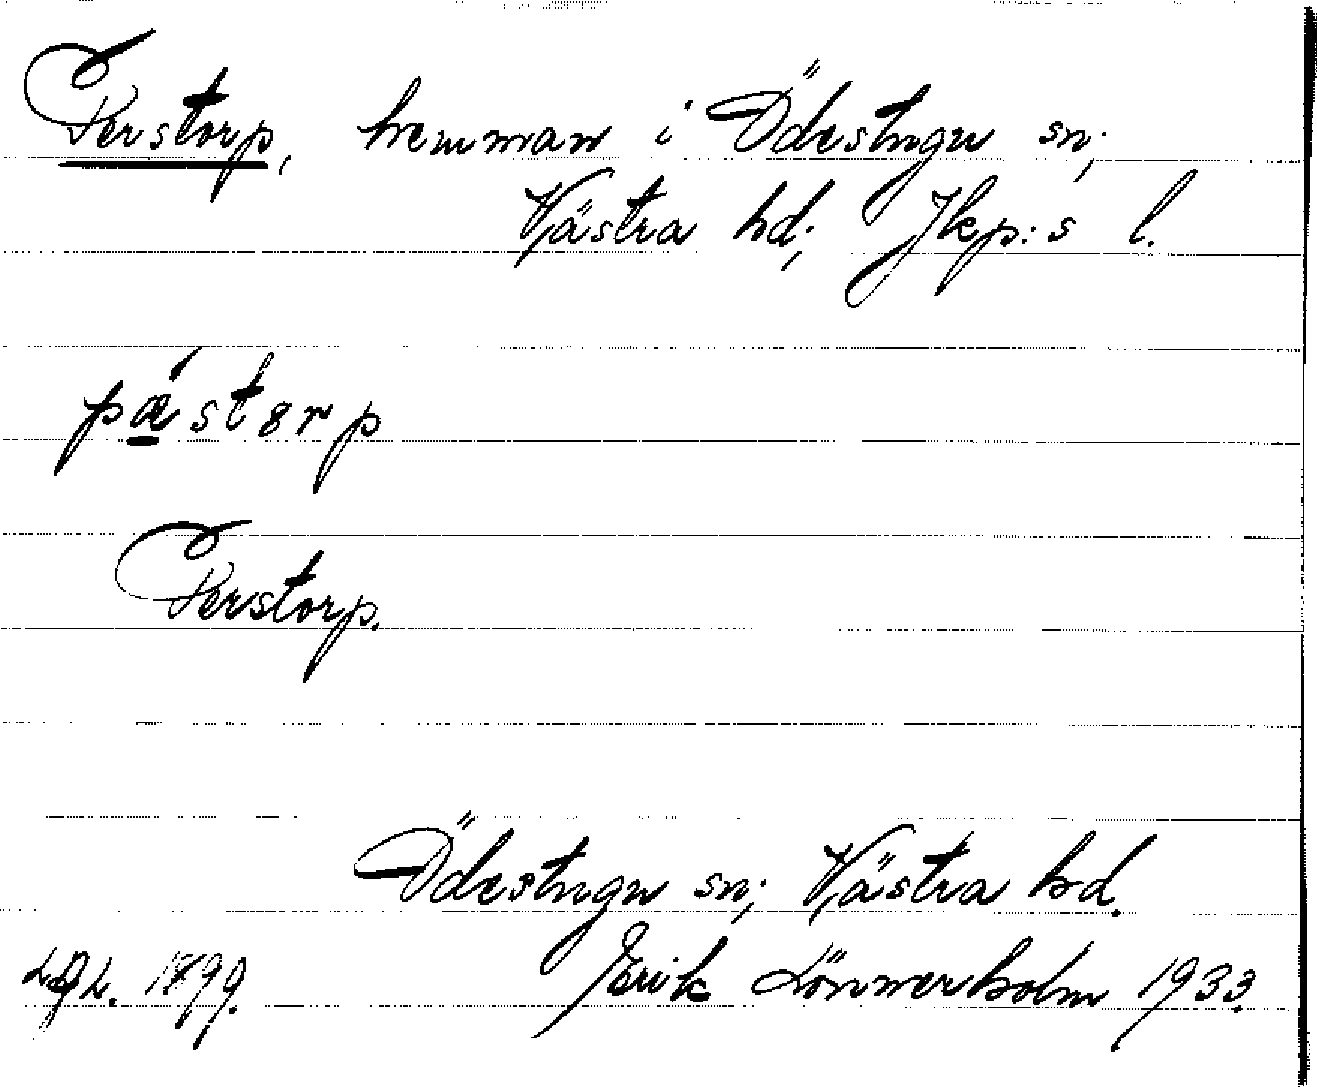 Perstorp, hemman i Ödestugu sn;
Västra hd; Jkp:s l.
pǽstorp
Perstorp.
Ödestugu sn; Västra hd.
1899. Erik Lönnerholm 1933.